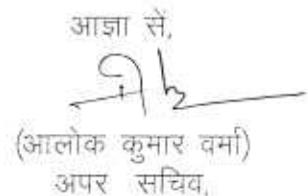 आज्ञा सें,
(आलोक कुमार वर्मा)
अपर सचिव,